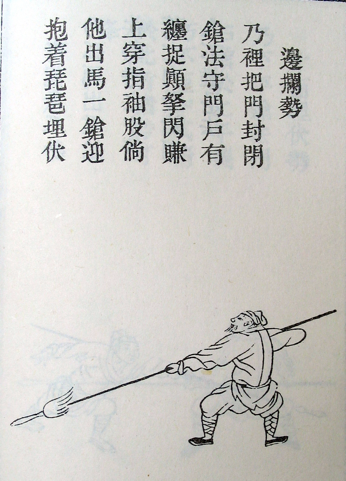 邊攔勢
乃裡把門封閉
鎗法守門戶有
纏捉顛拏閃賺
上穿指袖股倘
他出馬一鎗迎
抱着琵琶埋伏